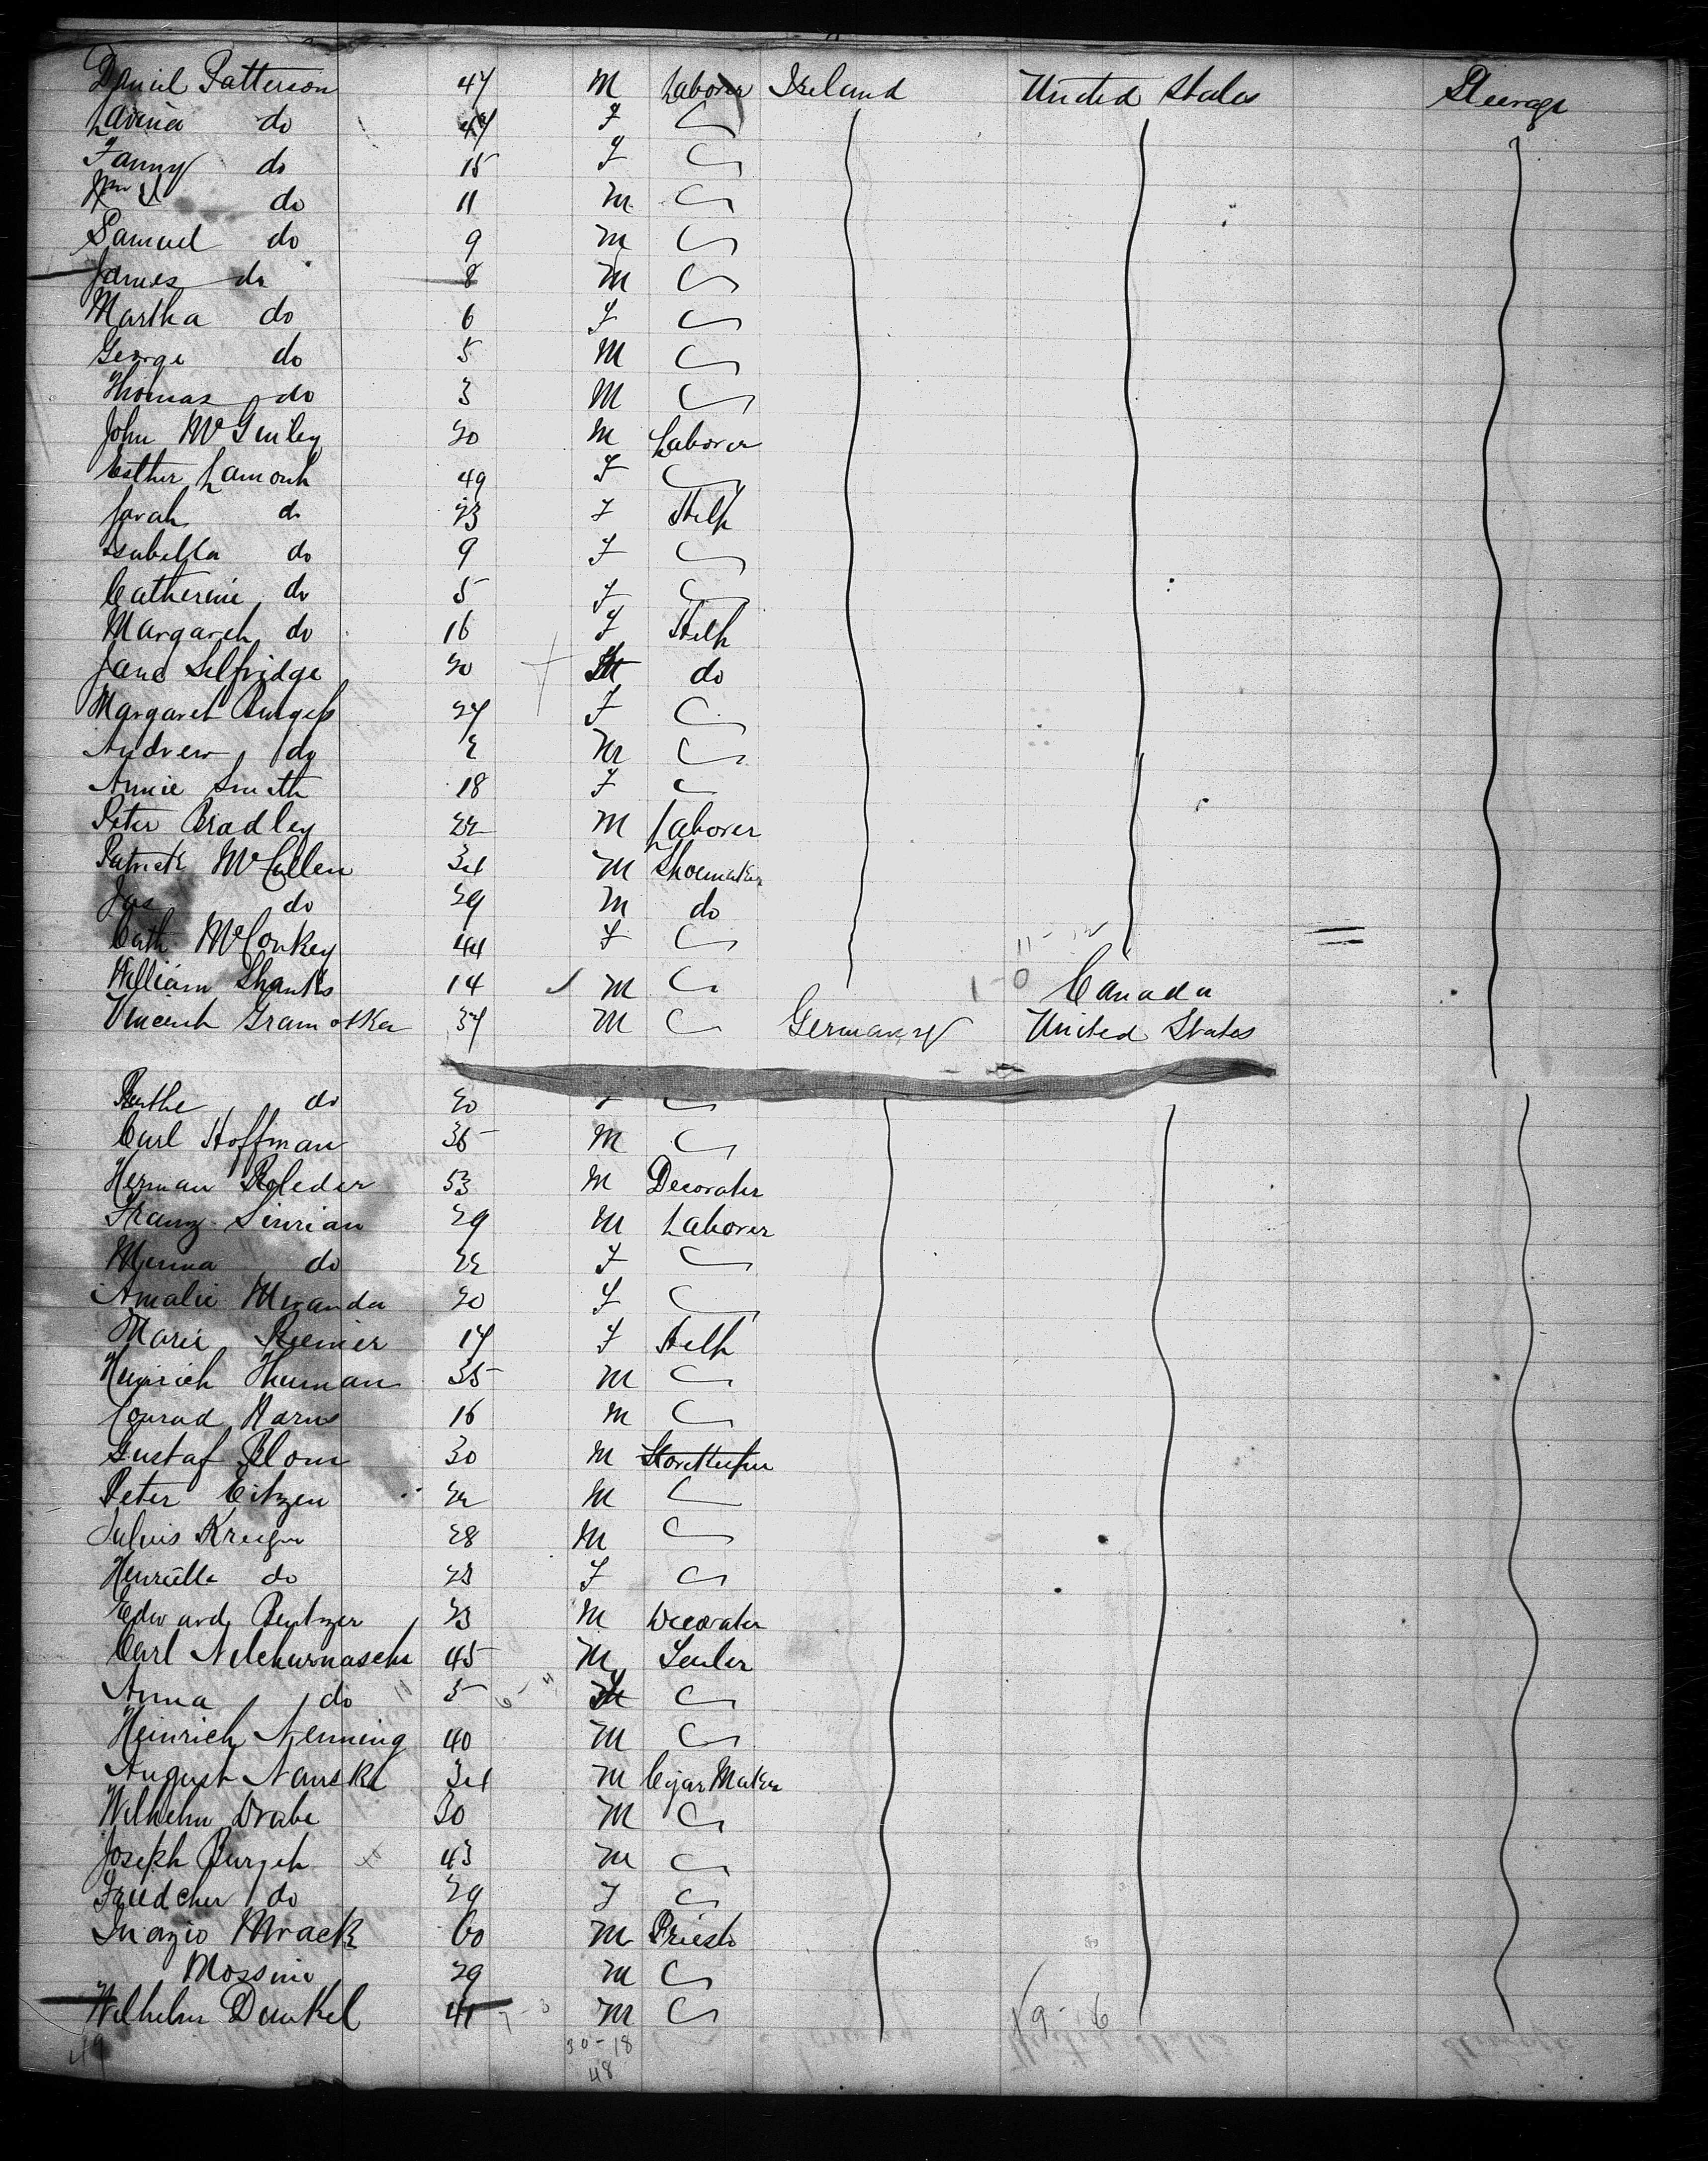 Daniel Patterson 47 M Laborer Ireland United States Steerage
Lavina do 47 F
Fanny do 15 F
Wm J do 11 M
Samuel do 9 M
James do 8 M
Martha do 6 F
George do 5 M
Thomas do 3 M
John McGinley 20 M Laborer
Esther Lamont 49 F
Sarah do 23 F Help
Isabella do 9 F
Catherine do 5 F
Margaret do 16 F Help
Jane Selfridge 20 F do
Margaret Burgess 27 F
Andrew do 2 M
Annie Smith 18 F
Peter Bradley 22 M Laborer
Patrick McCullen 34 M Shoemaker
Jas do 29 M do
Cath McConkey 44 F
William Shanks 14 M Canada
Vincent Gramotka 37 M Germany United States
do 20
Carl Hoffman 36 M
Herman Roleder 53 M Decorater
Franz 29 M Laborer
do 22 F
Amalie Miranda 20 F
Marie 17 F Help
Heinrich Thuman 35 M
Conrad Harns 16 M
Gustaf Blom 30 M Storekeeper
Peter Eitzen 22 M
Julius Kreiger 28 M
Henriette do 23 F
Edward Bentzer 23 M Decorater
Carl 45 M
Anna do 5 F
Heinrich Nenning 40 M
August Nauske 34 M Cigar Maker
Wilhelm Drabe 30 M
Joseph 43 M
do 29 F
Inazio Mrack 60 M Priest
Mossini 29 M
Wilhelm Dunkel 41 M
49 30-18 19-6
48